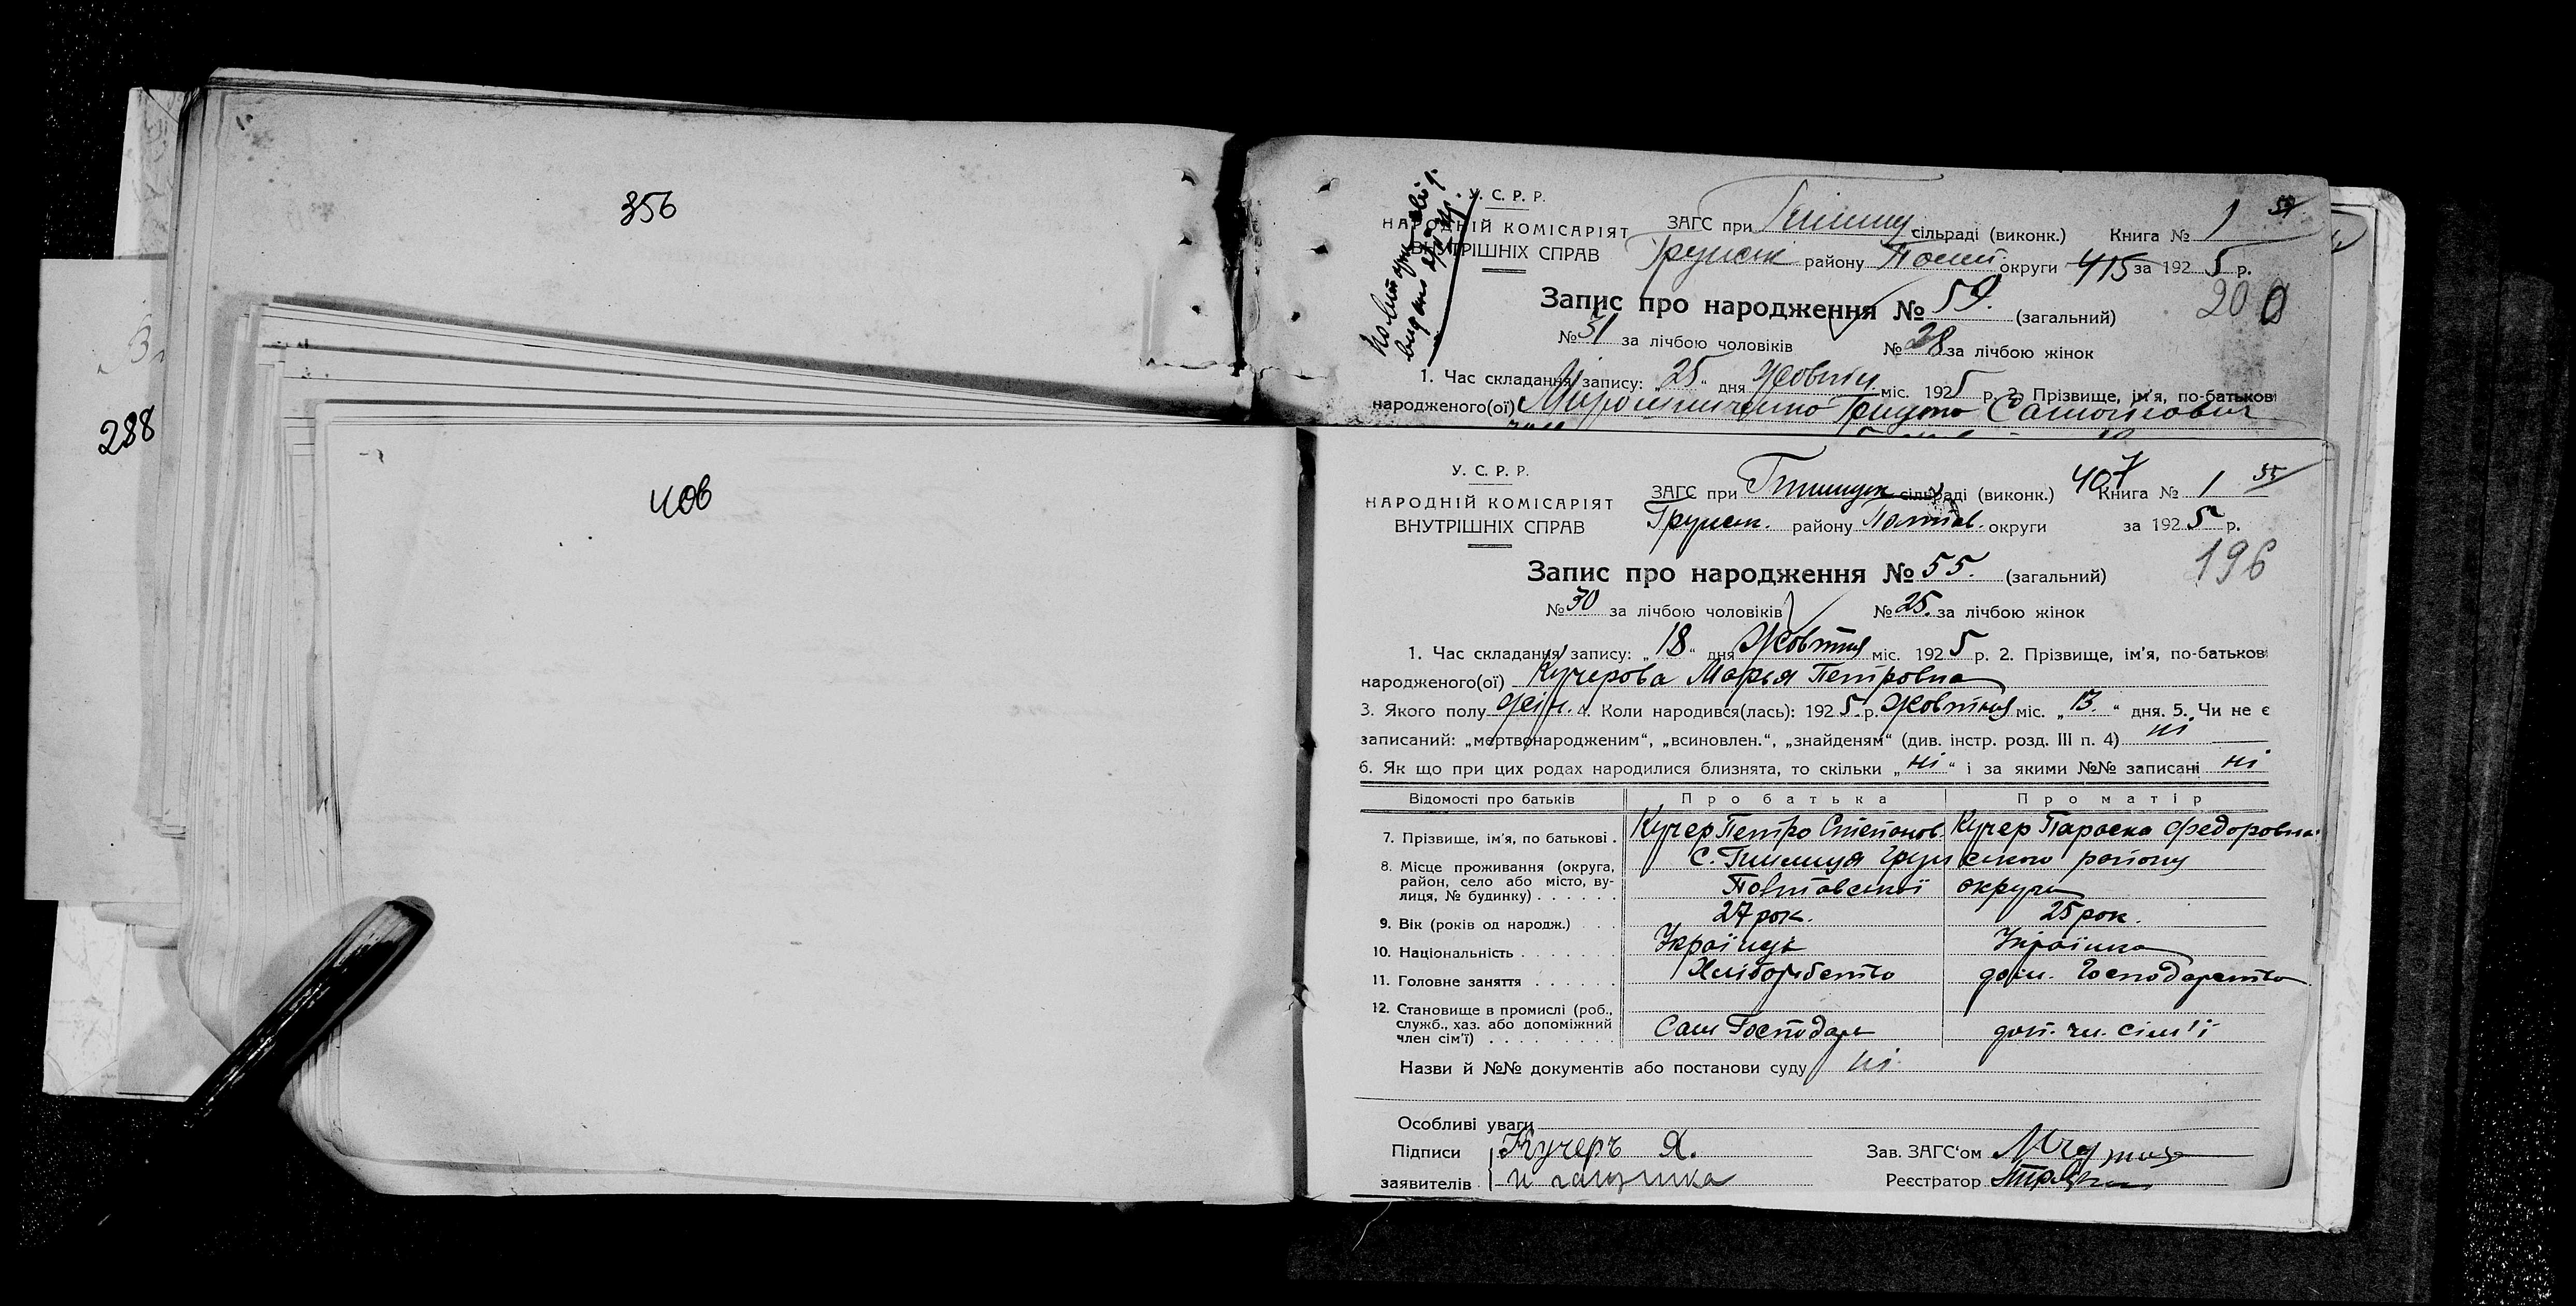 356
288
406
У. С. Р. Р.
НАРОДНІЙ КОМІСАРІЯТ
ВНУТРІШНІХ СПРАВ
ЗАГС при сільраді (виконк.) Книга № 1 59
Грунськ району Полт округи 415 за 1925 р.
Запис про народження № 59. (загальний)
200
№ 31 за лічбою чоловіків № 28 за лічбою жінок
1. Час складання запису: „25“ дня Жовтн міс. 1925 р. 2. Прізвище, ім'я, по-батькові
народженого(ої) Мірошниченко
У. С. Р. Р.
НАРОДНІЙ КОМІСАРІЯТ
ВНУТРІШНІХ СПРАВ
ЗАГС при сільраді (виконк.) 407 Книга № 1 55
Грунськ. району Полтав. округи за 1925 р.
Запис про народження № 55. (загальний)
196
№ 30 за лічбою чоловіків № 25. за лічбою жінок
1. Час складання запису: „18“ дня Жовтня міс. 1925 р. 2. Прізвище, ім'я, по-батькові
народженого(ої) Кучерова Марья Петровна
3. Якого полу жін. 4. Коли народився(лась): 1925 р. Жовтня міс. „13.“ дня. 5. Чи не є
записаний: „мертвонародженим“, „всиновлен.“, „знайденям“ (див. інстр. розд. III п. 4) ні
6. Як що при цих родах народилися близнята, то скільки „ні“ і за якими №№ записані ні
Відомості про батьків Про батька Про матір
7. Прізвище, ім'я, по батькові . Кучер Петро Степанов. Кучер Параска Федоровна
8. Місце проживання (округа, район, село або місто, вулиця, № будинку) . . . . . . с. Грунського району
Полтавської округи
9. Вік (років од народж.) . . . 27 рок. 25 рок.
10. Національність . . . . . . . Українець Українка
11. Головне заняття . . . . . . Хліборобство дом. Господарство
12. Становище в промислі (роб., служб., хаз. або допоміжний член сім'ї) . . . . . . . . . Сам Господарь доп. чл. сім'ї
Назви й №№ документів або постанови суду ні
Особливі уваги
Підписи Кучеръ Я.
заявителів
Зав. ЗАГС‘ом
Реєстратор